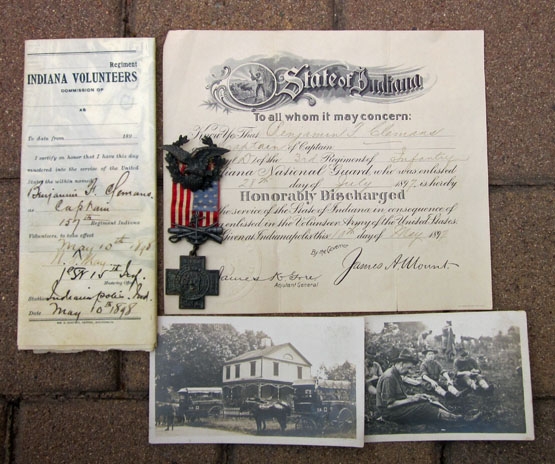 Regiment
INDIANA VOLUNTEERS
COMMISSION OF
AS
To date from 189
I certify on honor that I have this day
mustered into the service of the United
States the within named
Benjamin F. Clemans
as Captain
157th Regiment Indiana
Volunteers, to take effect
May 10th 1898
1st 15th Inf.
Mustering
Station Indianapolis Ind.
Date May 10th 1898
State of Indiana
To all whom it may concern:
Know Ye, That Benjamin F. Clemans
Captain of Captain
D of the 3rd Regiment of Infantry
Indiana National Guard, who was enlisted
day of July 1897, is hereby
Honorably Discharged
the service of the State of Indiana in consequence of
enlisted in the Volunteer Army of the United States.
Given at Indianapolis this 10th day of May 1898
By the Governor
James K. Gore James A. Mount
Adjutant General